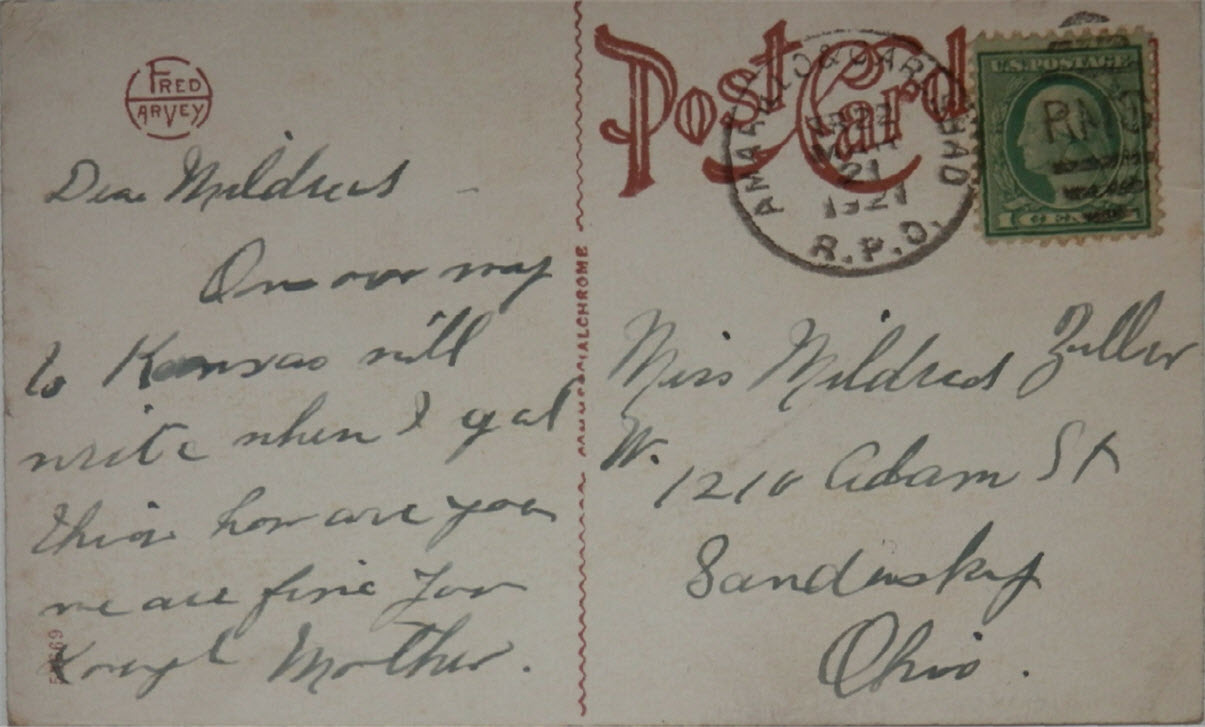 FRED
HARVEY
Dear Mildred
On our way
to Kansas will
write when I get
how are you
we are fine your
Mother.
Post Card
AMARILLO & CARLSBAD
TR 22
MAR
21
1921
R.P.O.
U.S. POSTAGE
RMS
Miss Mildred Zuller
W.
1210 Adam St
Sandusky
Ohio.